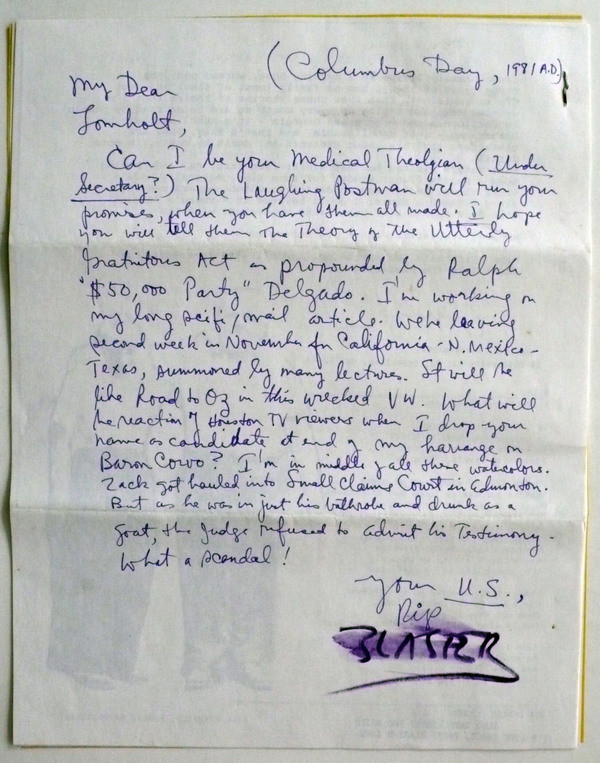 (Columbus Day, 1981 A.D.)
My Dear
Lomholt,
Can I be your Medical Theolgian (Under
Secretary?) The Laughing Postman will run your
promises, when you have them all made. I hope
you will tell them the Theory of the Utterly
Gratuitous Act as propounded by Ralph
"$50,000 Party" Delgado. I'm working on
my long scifi/mail article. We're leaving
second week in November for California - N. Mexico -
Texas, summoned by many lectures. It will be
like Road to Oz in this wrecked VW. What will
be reaction of Houston TV viewers when I drop your
name as candidate at end of my harrange on
Baron Corvo? I'm in middle of all these watercolors.
Zack got hauled into Small Claims Court in Edmonton.
But as he was in just his bathrobe and drunk as a
goat, the Judge refused to admit his Testimony.
What a scandal!
Your U.S.,
Rip
BLASTER